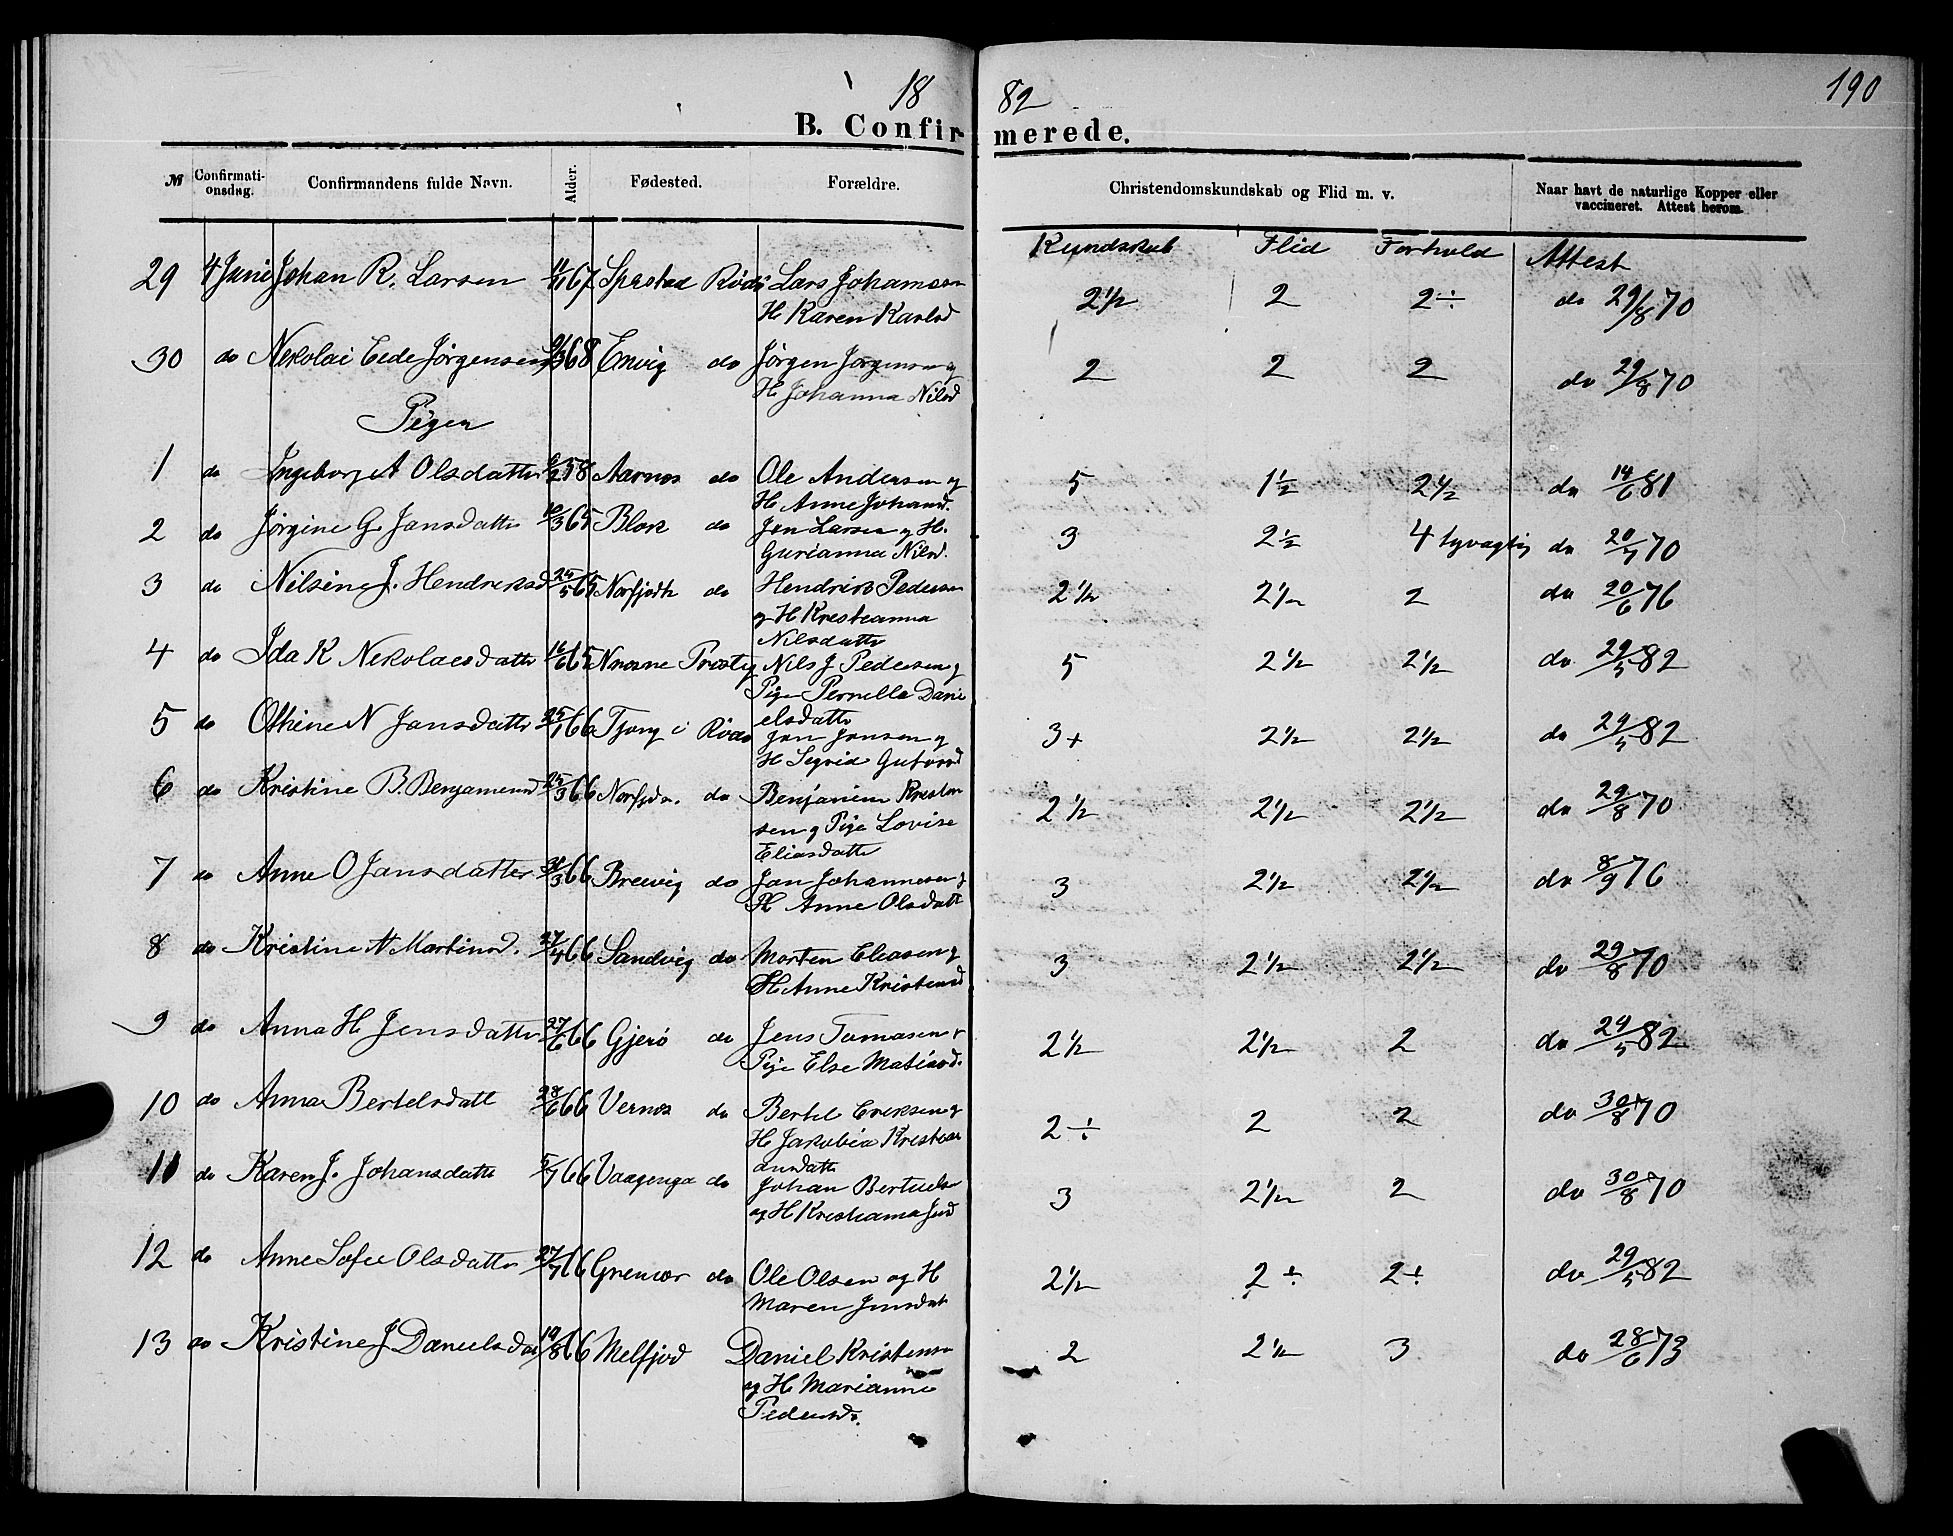 18 82 190
B. Confirmerede.
№ Confirmationsdag. Confirmandens fulde Navn. Alder. Fødested. Forældre. Christendomskundskab og Flid m. v. Naar havt de naturlige Kopper eller vaccineret. Attest herom.
Kundskab Flid Forhold Attest
29 4 Juni Johan R. Larsen 67 Røds Lars Johansen
H Karen Karlsd 2 1/2 2 2 ÷ do 29/8 70
30 do Nekolai Eede Jørgensen 68 Envig do Jørgen Jørgensen og
H Johanna Nilsd 2 2 2 do 29/8 70
Piger
1 do Ingeborg A Olsdatter 58 Aarnes do Ole Andersen og
H Anne Johansd. 5 1 1/2 2 1/2 do 14/6 81
2 do Jørgine G. Jansdatter 65 Blok do Jan Larsen og H.
Gurianna Nilsd. 3 2 1/2 4 tyvagtig do 20/7 70
3 do Nilsine J. Hendreksd 25/5 65 Norfjordh do Hendrik Pedersen
og H Kresteanna
Nilsdatter 2 1/2 2 1/2 2 do 20/6 76
4 do Ida K Nekolaesdatter 16/6 65 Nils J Pedersen og
Pige Pernella Dani
elsdatter 5 2 1/2 2 1/2 do 29/5 82
5 do Othine N Jansdatter 25/1 66 Tjong i Rødø Jan Jansen og
H Segrid 3+ 2 1/2 2 1/2 do 29/5 82
6 do Kristine B. Benjamensd 25/3 66 Norfjdn. do Benjamin Kresten
sen og Pige Lovise
Eliasdatter 2 1/2 2 1/2 2 1/2 do 29/8 70
7 do Anne O Jansdatter 31/3 66 Brevig do Jan Johannesen og
H Anne Olsdatt 3 2 1/2 2 1/2 do 8/9 76
8 do Kristine N Martinsd. 27/4 66 Sandvig do Morten Eleasen og
H Anne Kristensd 3 2 1/2 2 1/2 do 29/8 70
9 do Anna H Jensdatter 27/6 66 Gjerø do Jens Tomasen +
Pige Else Matiasd. 2 1/2 2 1/2 2 do 29/5 82
10 do Anna Bertelsdatt 28/6 66 Vernes do Bertel Ereksen og
H Jakobia Kresten
ansdatte 2 ÷ 2 2 do 30/8 70
11 do Karen J. Johansdatte 5/7 66 Vaagenga do Johan Bertuels
og H Krestiana Jensd 3 2 1/2 2 do 30/8 70
12 do Anne Sofie Olsdatter 27/7 66 Grenvær do Ole Olsen og H
Maren Jensdat 2 1/2 2 ÷ 2 ÷ do 29/5 82
13 do Kristine J Danielsdat 19/8 66 Melfjord Daniel Kristensen
og H Marianne
Pedersd. 2 2 1/2 3 do 28/6 73